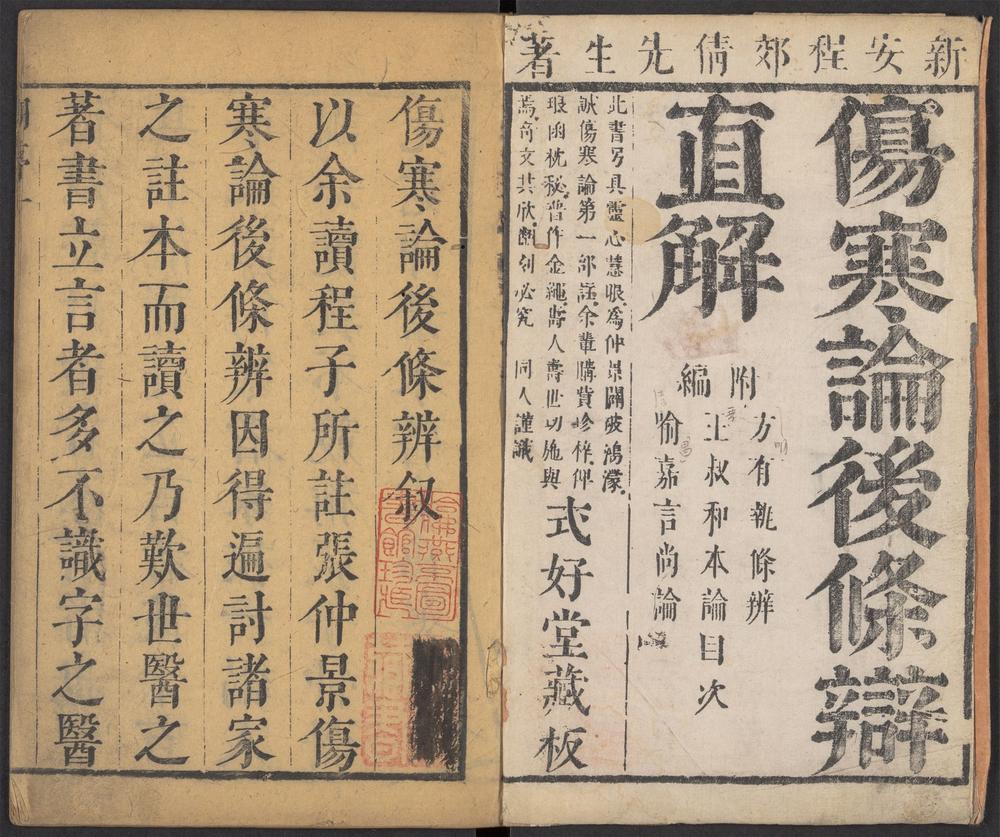 新安程郊倩先生著
傷寒論後條辯
直解
附編
方有執條辨
王叔和本論目次
喻嘉言尚論篇
此書另具靈心慧眼為仲景闢破鴻濛
誠傷寒論第一部註余輩購貲珍梓俾
琅函枕秘普作金繩壽人壽世功施與
焉奇文共欣翻刻必究 同人謹識
式好堂藏板
傷寒論後條辨叙
以余讀程子所註張仲景傷
寒論後條辨因得遍討諸家
之註本而讀之乃歎世醫之
著書立言者多不識字之醫